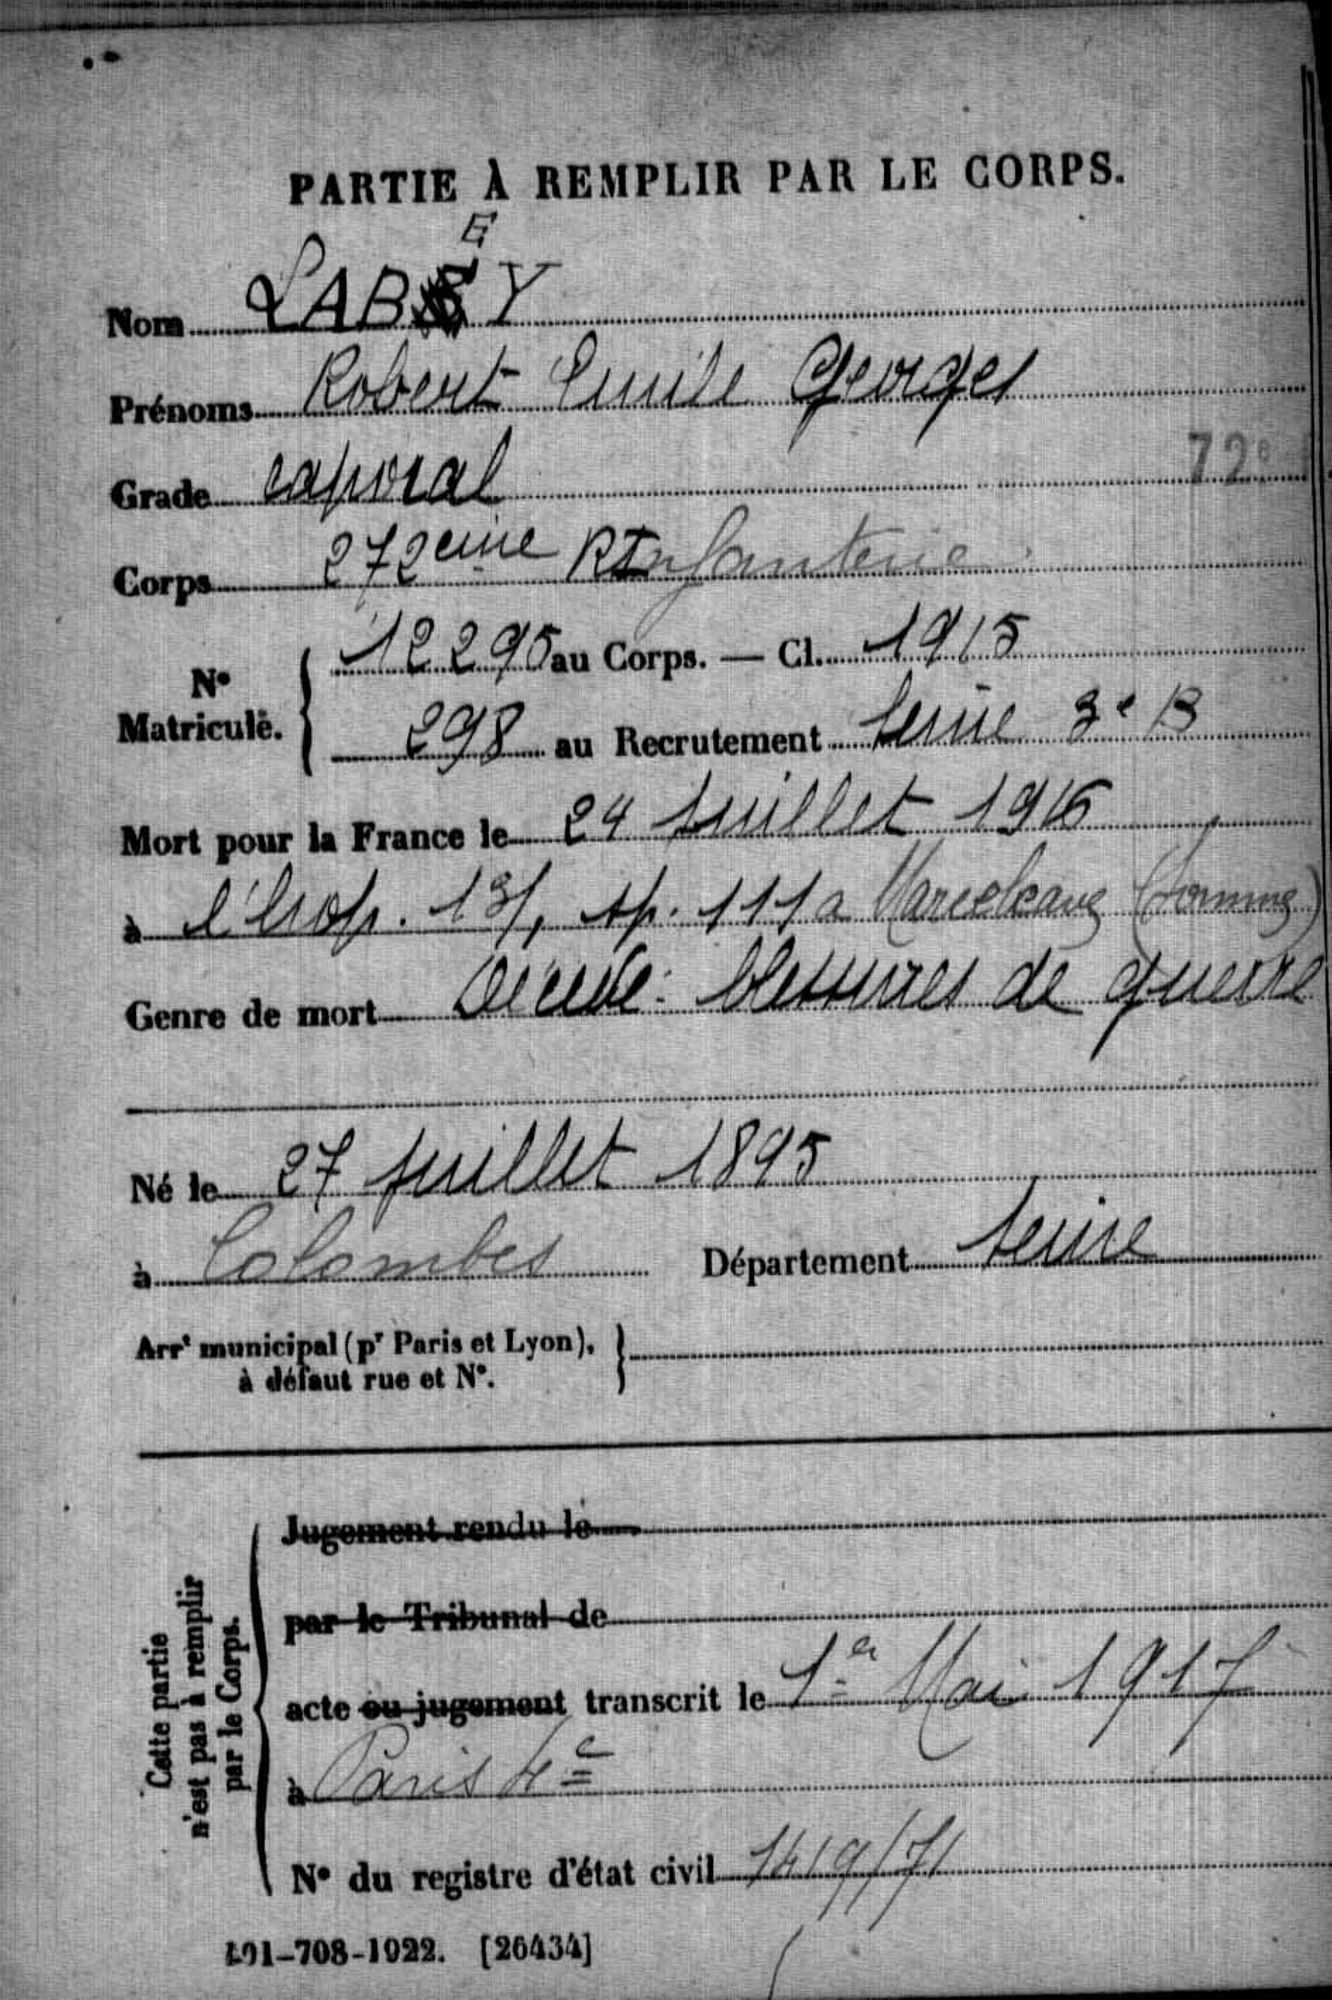 PARTIE À REMPLIR PAR LE CORPS.
E
Nom LABEY
Prénoms Robert Emile Georges
Grade caporal
72e
Corps 272eme RInfanterie
12295 au Corps. — Cl. 1915
N° Matricule.
298 au Recrutement Seine 3e B
Mort pour la France le 24 Juillet 1916
à l'hop. 13/, sp. 111 a Marcelcave (Somme)
Genre de mort Décédé: blessures de guerre
Né le 27 Juillet 1895
à Colombes Département Seine
Arrt municipal (pr Paris et Lyon),
à défaut rue et N°.
Jugement rendu le
par le Tribunal de
acte ou jugement transcrit le 1er Mai 1917
à Paris 4e
N° du registre d'état civil 1419/71
Cette partie
n'est pas à remplir
par le Corps.
101-708-1922. [26434]